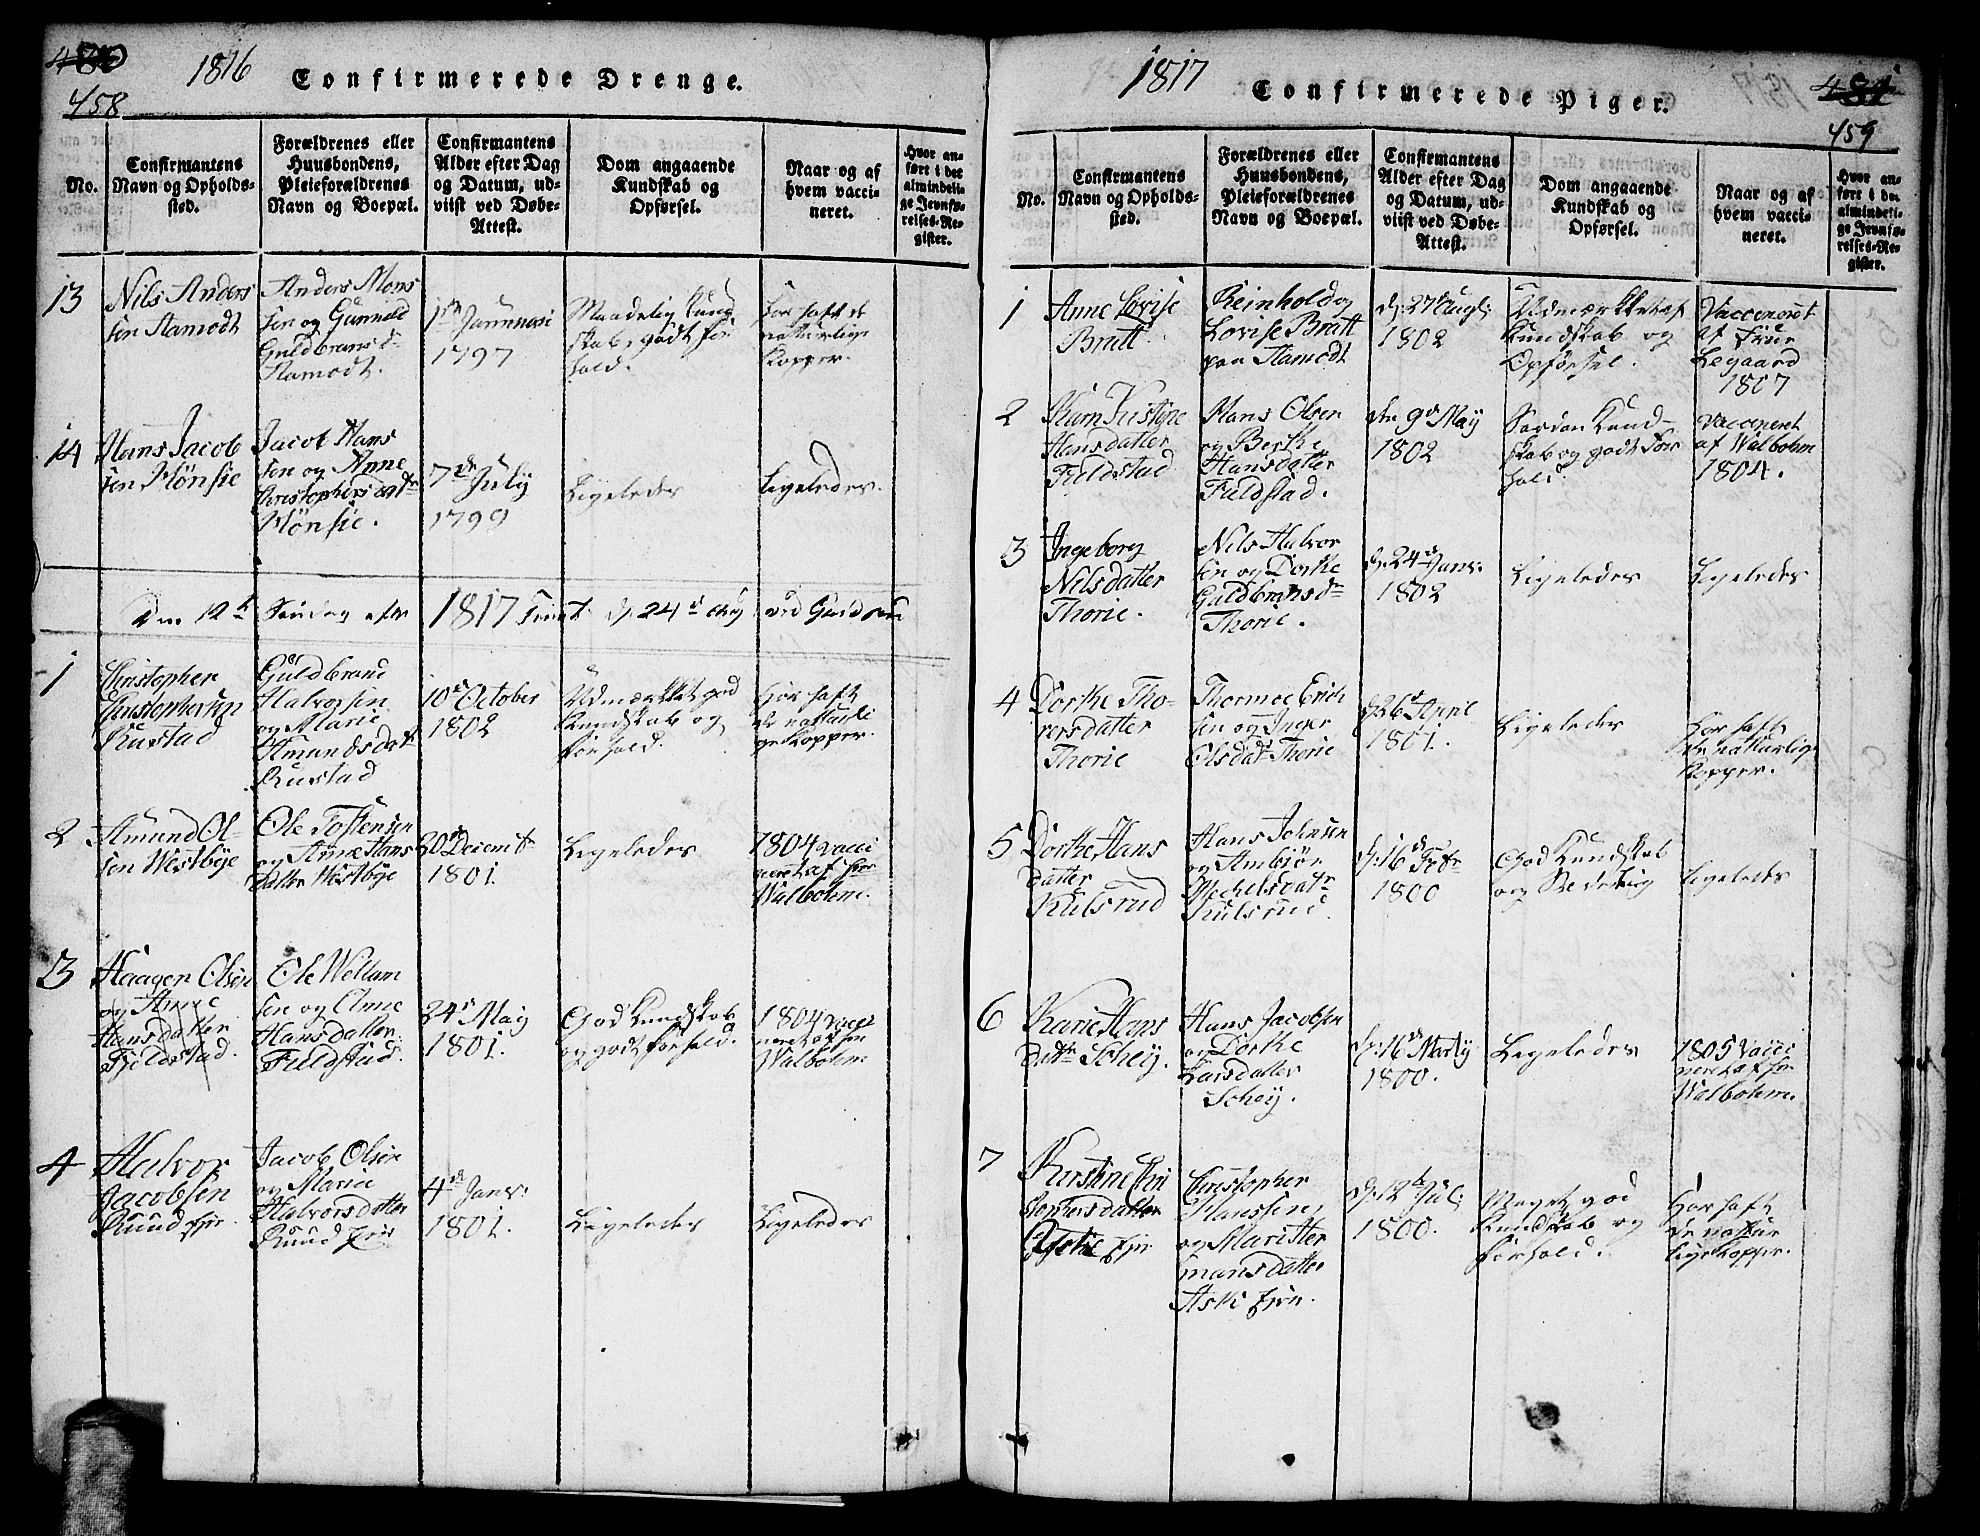 1816
Confirmerede Drenge.
458
No.
Confirmantens
Navn og Opholds-
sted.
Forældrenes eller
Huusbondens,
Pleieforældrenes
Navn og Boepæl.
Confirmantens
Alder efter Dag
og Datum, ud-
viist ved Døbe-
Attest.
Dom angaaende
Kundskab og
Opførsel.
Naar og af
hvem vacci-
neret.
Hvor an-
ført i det
almindeli-
ge Jevnfø-
relses-Re-
gister.
13
Nils Anders
sen Stamodt
Anders Mons
sen og Gunnild
Guldbransd
Stamodt.
1 Januari
1797
Maadelig Kund
skab, godt for
hold.
har haft de
natturlige
kopper.
14
Hans Jacob
sen Hønsie
Jacob Hans
sen og Anne
Christophersdatr
Hønsie.
7de July
1799
Ligeledes
Ligeledes.
Den 12te Søndag efter 1817 Trinit. d. 24d Aug ved Gudsrud
1
Christopher
Christophersen
Rustad
Guldbrand
Halvorsen
og Marie
Amundsdatr
Rustad
10d October
1802
Udmærkket god
Kundskab og
forhold.
Har haft
de natturli
ge kopper.
2
Amund Ol-
sen Westbye
Ole Tostensen
og Anne Hans
datter Westbye
20d Decembr
1801.
Ligeledes.
1804 vacci
neret af hr
Walbohm.
3
Haagen Olsen
og Anne
Hansdatter
Fjeldstad.
Ole Wellum
sen og Anne
Hansdatter
Fieldstad.
24d May
1801.
God Kundskab
og godt forhold.
1804 vacci
neret af hr
Walbohm.
4
Halvor
Jacobsen
Ruud
Jacob Olsen
og Maria
Halvorsdatter
Ruud
4de Janv:
1801.
Ligeledes
Ligeledes
1817
Confirmerede Piger.
459
No.
Confirmantens
Navn og Opholds-
sted.
Forældrenes eller
Huusbondens,
Pleieforældrenes
Navn og Boepæl.
Confirmantens
Alder efter Dag
og Datum, ud-
viist ved Døbe-
Attest.
Dom angaaende
Kundskab og
Opførsel.
Naar og af
hvem vacci-
neret.
Hvor an-
ført i det
almindeli-
ge Jevnfø-
relses-Re-
gister.
1
Anne Lovise
Bratt
Reinhold og
Lovise Bratt
paa Stamodt
d: 27d Augl:
1802
Udmærkket af
Kundskab og
Opførsel.
Vacceneret
af Frue
Legaard
1807
2
Kirstine
Hansdatter
Fieldstad
Hans Olsen
og Berthe
Hansdatter
Fieldstad.
den 9d May
1802
Saadan Kund-
skab og godt for
hold.
Vacceneret
af Walbohm
1804.
3
Ingeborg
Nilsdatter
Thorie.
Nils Halvor
sen og Dorthe
Guldbransdr
Thorie.
d: 24d Janv:
1802
Ligeledes
Ligeledes
4
Dorthe Tho-
rersdatter
Thorie
Thormoe Erich
sen og Inger
Olsdatr Thorie
d 26d April
1801.
Ligeledes
Har haft
de natturlige
kopper.
5
Dorthe Hans
datter
Kulsrud
Hans Johnsen
og Ambjør
Mechelsdatr
Kulsrud.
d: 16d Febr
1800
God Kundskab
og
Ligeledes
6
Karie Hans
datr Schøy.
Hans Jacobsen
og Dorthe
Larsdatter
Schøy.
d: 16d Marty
1800.
Ligeledes
1805 Vacci
neret af hr
Walbohm.
7
Kirstine Chri
stophersdatter
Christopher
Hanssen,
og Marit Her
mansdatter
Aski
d: 12te Jul:
1800.
Meget god
Kundskab og
forhold.
Har haft
de nattur
lige kopper.